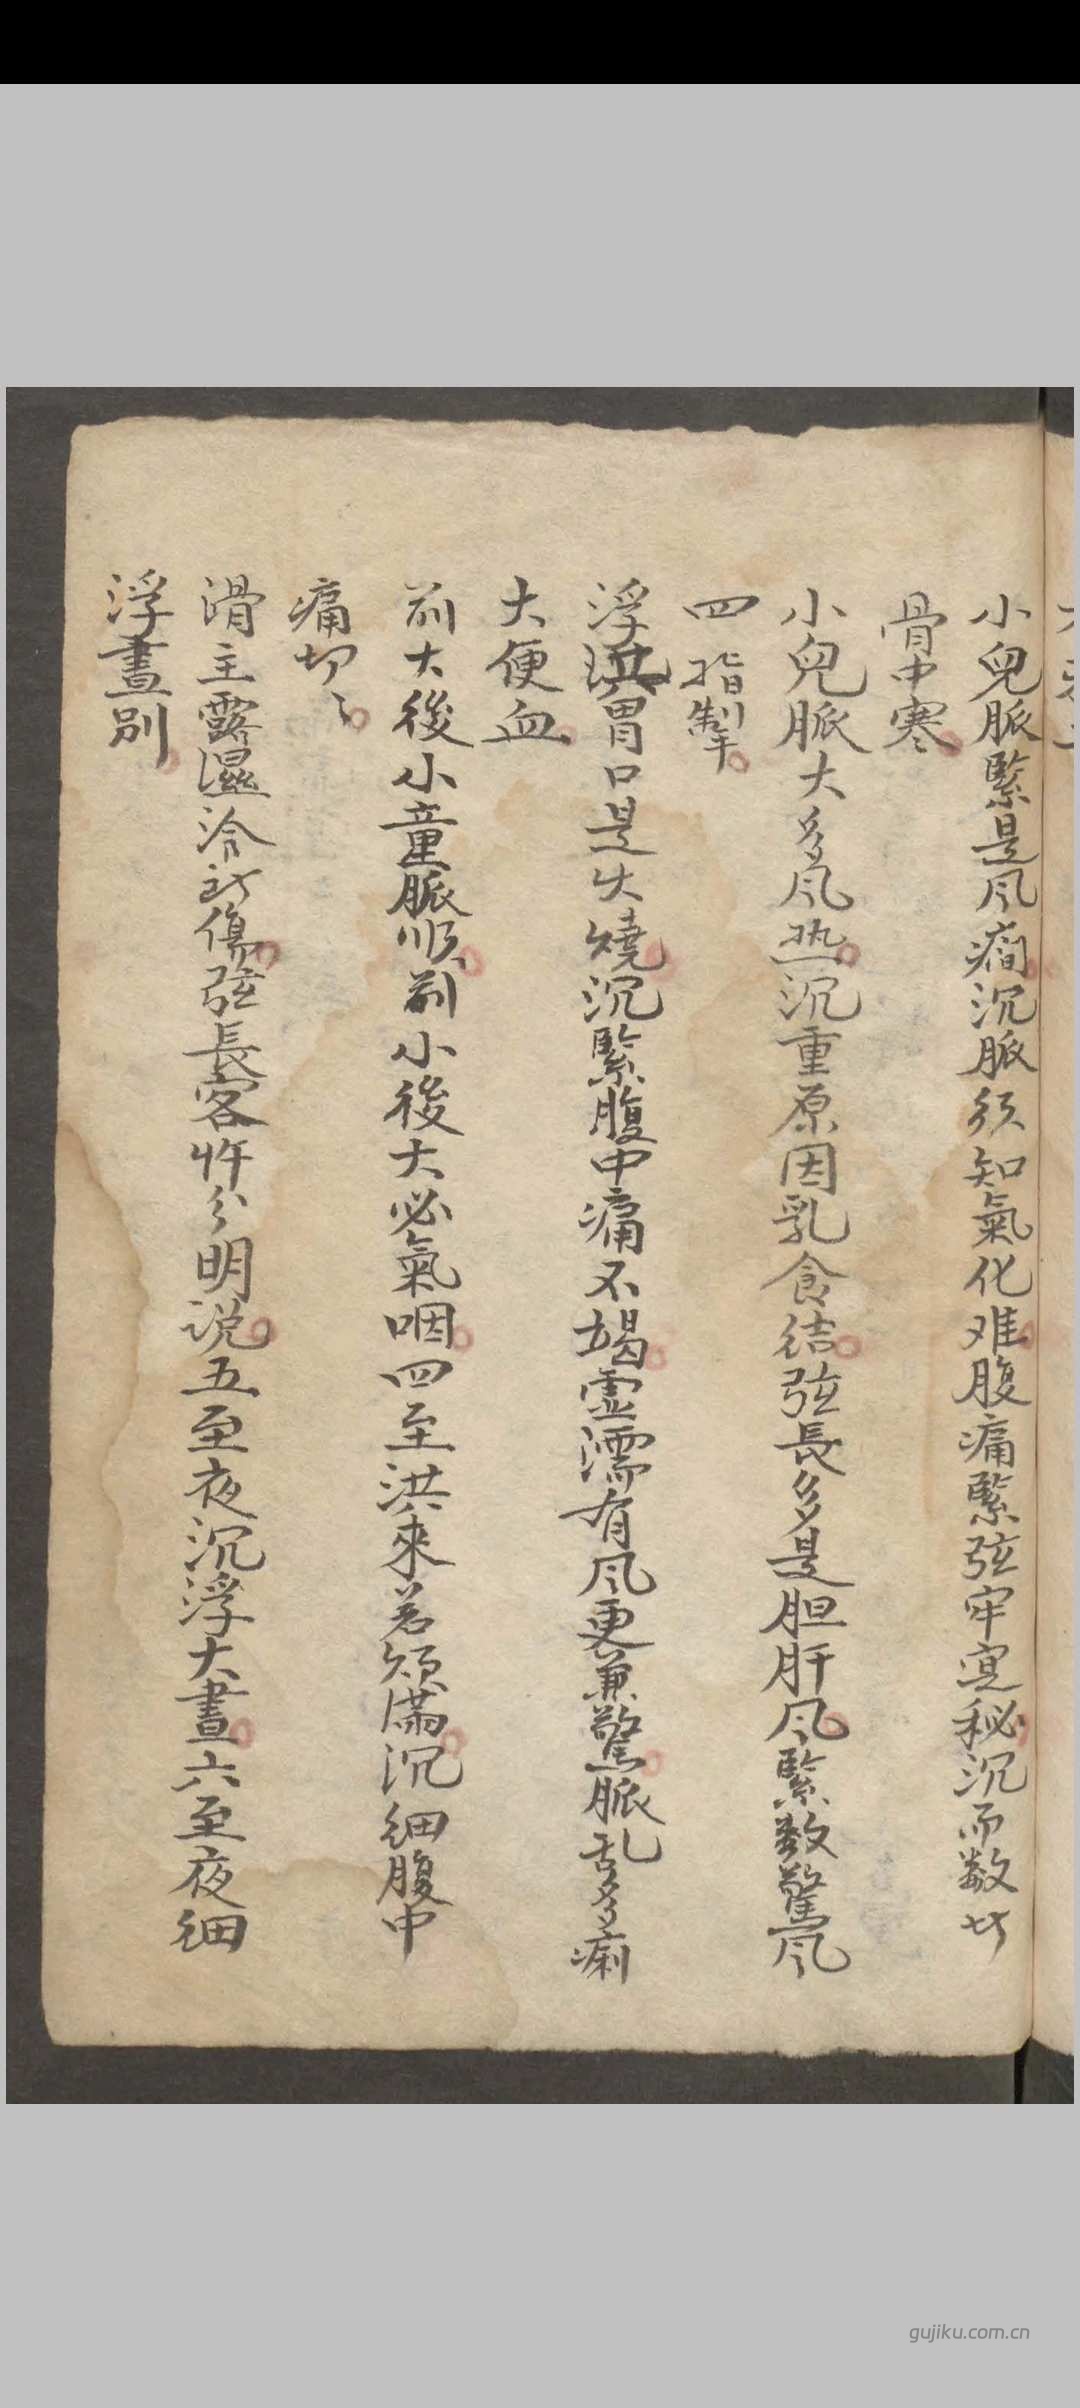 小兒脈緊是风癇沉脈须知氣化难腹痛緊弦牢寔秘沉而数者
骨中寒
小兒脈大多风热沉重原因乳食结弦長多是胆肝风緊数驚风
四指掣
浮洪胃口是火燒沉緊腹中痛不竭虚濡有风更兼驚脈乱多痢
大便血
前大後小童脈順前小後大必氣咽四至洪來若煩滿沉细腹中
痛切々
滑主露濕冷所傷弦長客忤分明说五至夜沉浮大晝六至夜细
浮晝别
gujiku.com.cn